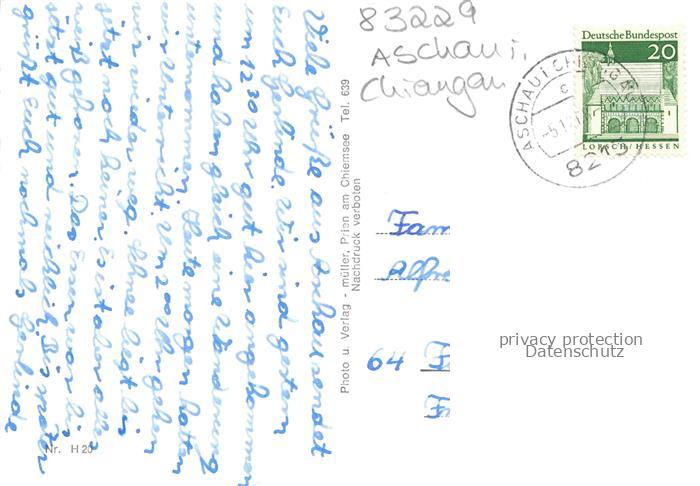 Viele Grüße aus Aschau sendet
Euch Gerlinde. Wir sind gestern
um 12 30 Uhr gut hier angekommen
und haben gleich eine Wanderung
unternommen. Heute morgen hatten
wir Unterricht. Um 2 00 Uhr gehen
wir wieder weg. Schnee liegt bis
jetzt noch keiner. Es ist aber alles
weiß gefroren. Das Essen war bis
jetzt gut und reichlich. Bis
grüßt Euch nochmals Gerlinde
Nr. H 20
Photo u. Verlag - müller, Prien am Chiemsee Tel. 639
Nachdruck verboten
83229
Aschau i.
Chiemgau
Deutsche Bundespost
20
LORSCH/HESSEN
ASCHAU i CHIEMGAU
8213
Fam
Alfre
64 F
privacy protection
Datenschutz